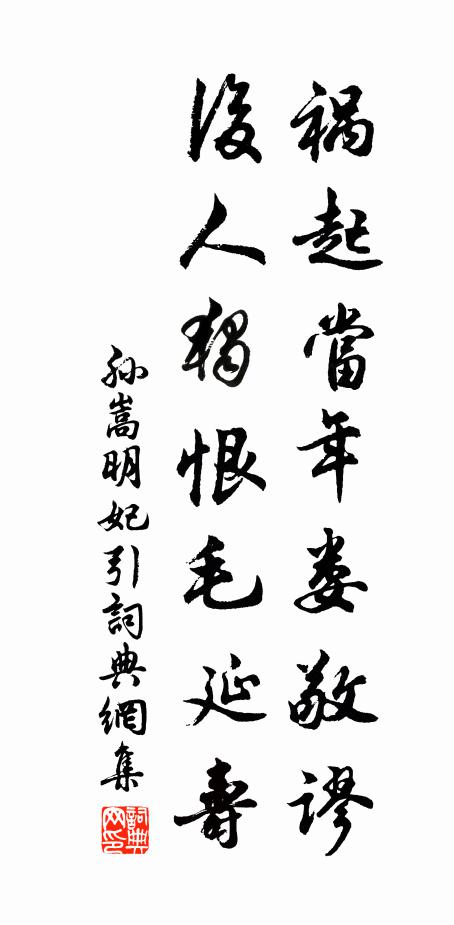 禍起當年娄敬謬
後人獨恨毛延壽
孙嵩明妃引詞典網集
詞典网印